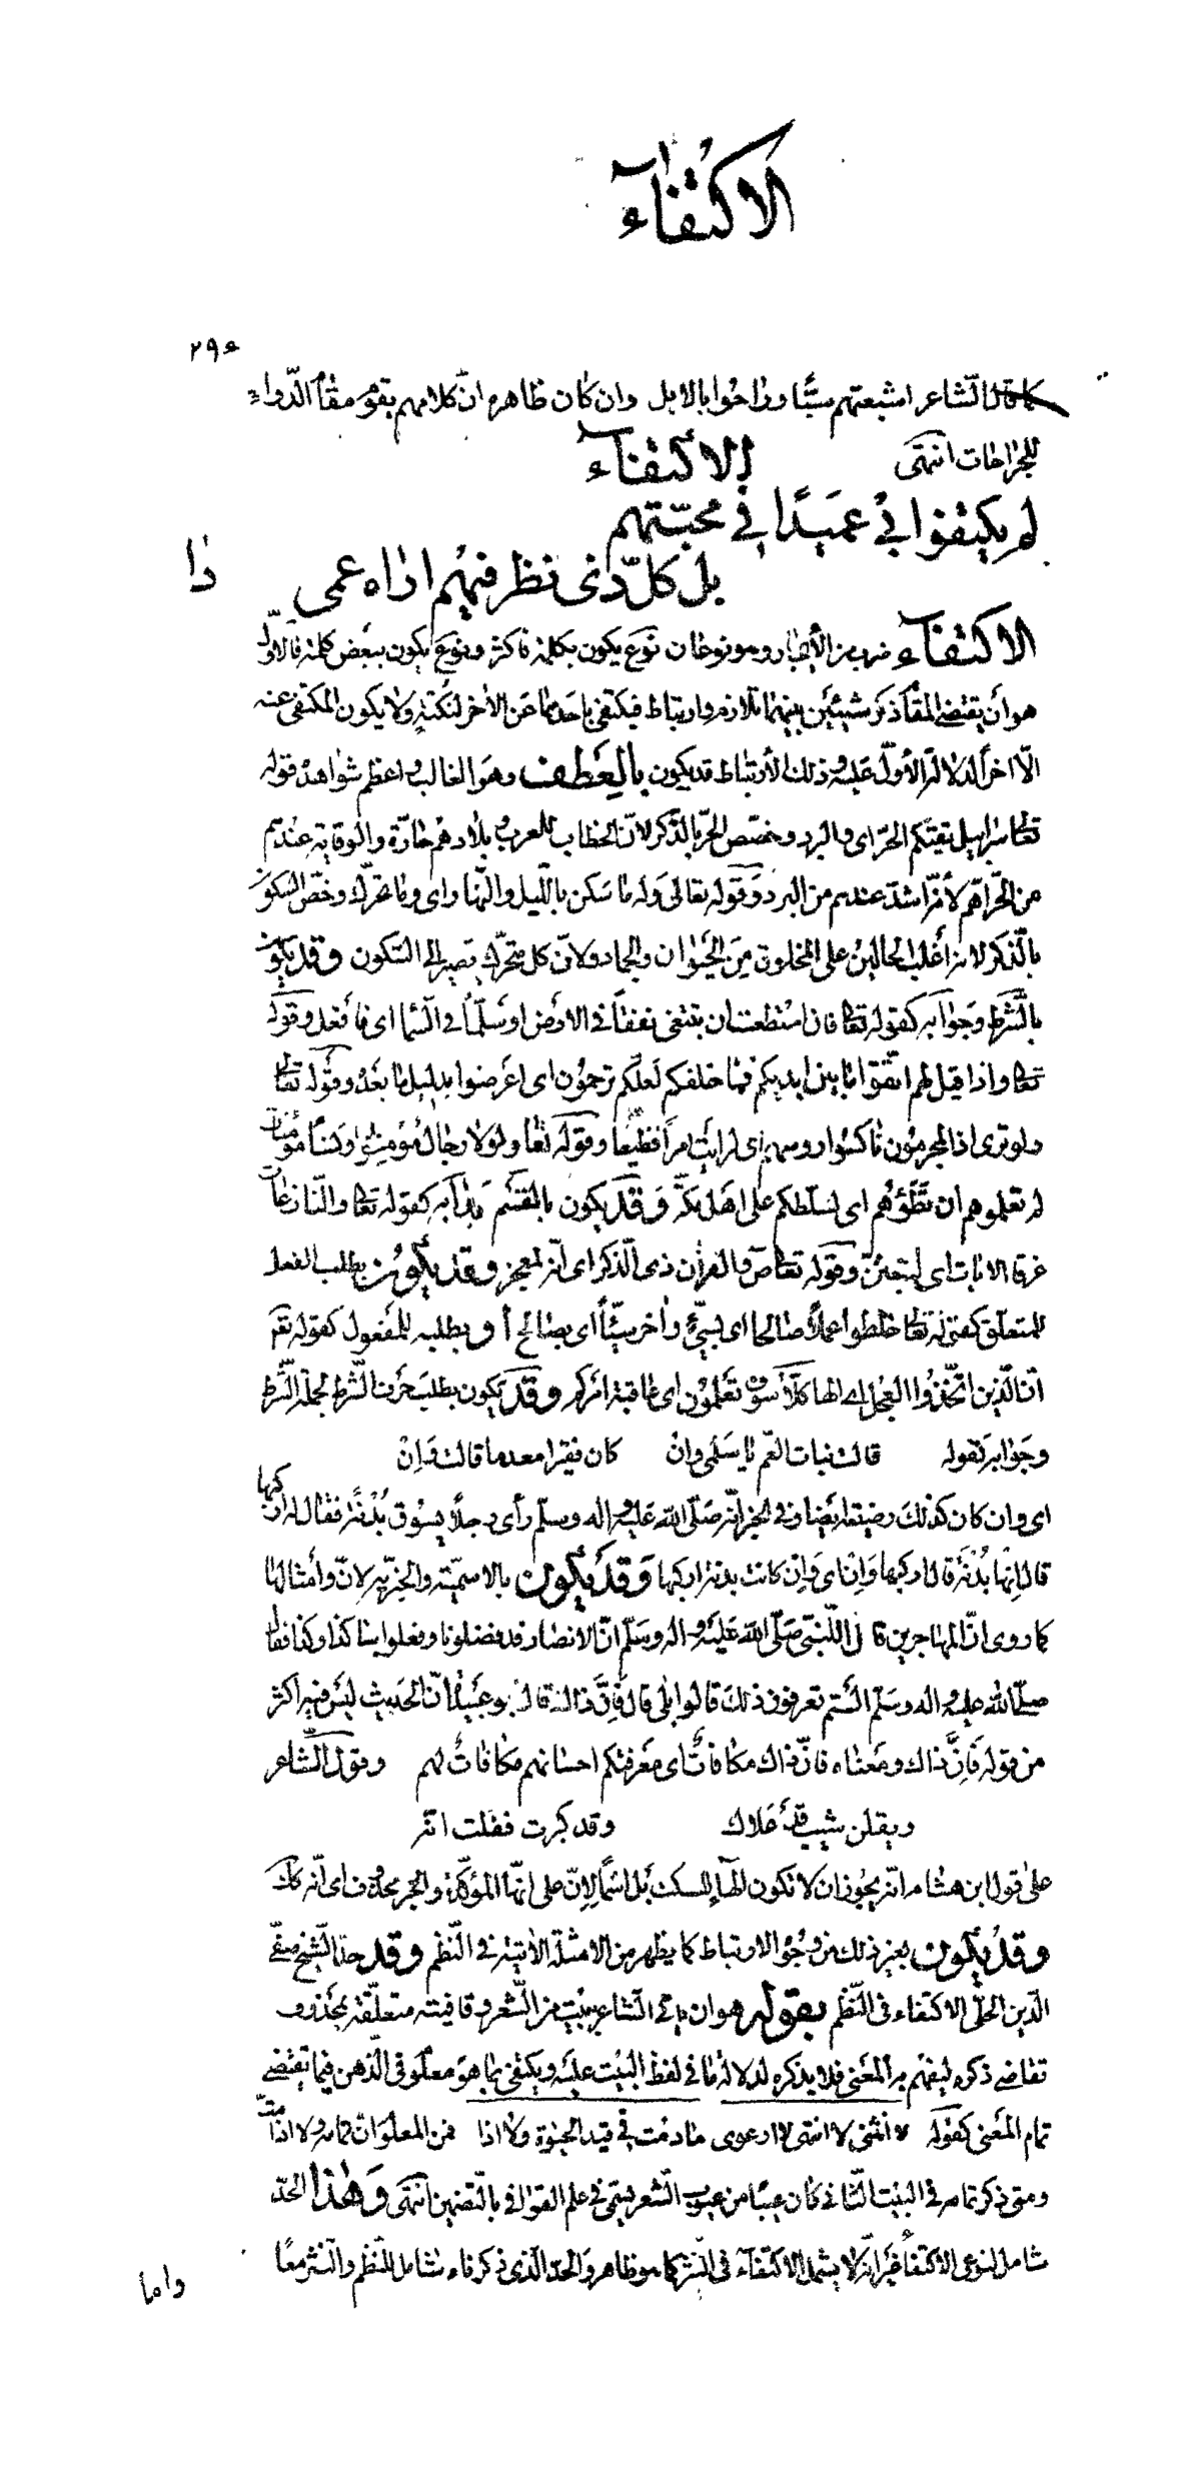 الاكتفاء
٢٩٤
كما قال الشاعر اشبعتهم سبّا وراحوا بالابل وان كان ظاهره انّ كلامهم يقوم مقام الدّواء
للجراحات انتهى
الاكتفاء
لم يكتفوا بي عميدًا في محبّتهم
بل كلّ ذى نظر فيهم اراه عمى
ذا
الاكتفاء ضرب من الأيجاز وهو نوعان نوع يكون بكلمة فاكثر ونوع يكون ببعض كلمة فالاوّل
هو أن يقتضي المقام ذكر شيئين بينهما تلازم وارتباط فيكتفى باحدهما عن الأخر لنكتة ولا يكون المكتفى عنه
الّا اخرًا لدلالة الأوّل عليه وذلك الأرتباط قد يكون بالعطف وهو الغالب واعظم شواهده قوله
تعالى سرابيل تقيكم الحرّ اى والبرد وخصّص الحرّ بالذّكر لانّ الخطاب للعرب وبلادهم حارّة والوقاية عندهم
من الحرّ اهمّ لأنّه اشدّ عندهم من البرد وقوله تعالى وله ما سكن بالّليل والنّهار اى وما تحرّك وخصّ السّكون
بالذّكر لانّه أغلب الحالين على المخلوق من الحيوان والجماد ولانّ كل متحرّك يصير الى السّكون وقد يكون
بالشّرط وجوابه كقوله تعالى فان استطعت ان تبتغى نفقًا في الارض او سلّمًا في السّماء اى فافعل وقوله
تعالى واذا قيل لهم اتّقوا ما بين ايديكم وما خلفكم لعلّكم ترحمون اى اعرضوا بدليل ما بعده وقوله تعالى
ولو ترى اذ المجرمون ناكسوا روسهم اى لرايت امرًا فظيعا وقوله تعالى ولولا رجال مؤمنون ونساء مؤمنات
لم تعلموهم ان تطؤهم اى لسلّطكم على اهل مكّة وقد يكون بالقسم وجوابه كقوله تعالى والنّازعات
غرقا الايات اى لتبعثنّ وقوله تعالى ص والقران ذى الذّكر اى انّه لمعجز وقد يكون بطلب الفعل
للمتعلّق كقوله تعالى خلطوا عملًا صالحا اى بسيّئ واخر سيّئًا اى بصالح أو بطلبه للمفعول كقوله تعالى
انّ الّذين اتّخذوا العجل اى الها كلّا سوف تعلمون اى عاقبة امركم وقد يكون بطلب حرف الشّرط لجملة الشّرط
وجوابه كقوله قالت بنات العمّ يا سلمى وانْ كان فقيرا معدما قالت وَاِنْ
اى وان كان كذلك رضيته ايضا وفي الخبر انّه صلّى الله عليه واله وسلّم رأى رجلًا يسوق بُدْنةً فقال له اركبها
قال انّها بُدْنةٌ قال اركبها وَاِنْ اى وَاِنْ كانت بدنة اركبها وقد يكون بالاسميّة والخبريّة لانّ وأمثالها
كما روى انّ المهاجرين قالوا للنّبىّ صلّى الله عليه واله وسلّم انّ الانصار قد فضلونا وفعلوا بنا كذا وكذا فقال
صلّى الله عليه واله وسلّم الستم تعرفون ذلك قالوا بلى قال فَاِنَّ ذاك قال ابو عبيد انّ الحديث ليس فيه اكثر
من قوله فَاِنَّ ذاك ومعناه فانّ ذاك مكافاتٌ اى معرفتكم احسانهم مكافاتٌ لهم وقول الشّاعر
ويقلن شيب قد علاك وقد كبرت فقلت انّه
على قول ابن هشام انّه يجوز ان لا تكون الهاء للسكت بل اسمًا لِانّ على انّها المؤكّدة والخبر محذوف اى انّه كذلك
وقد يكون بغير ذلك من وجوه الارتباط كما يظهر من الامثلة الاتية في النّظم وقد حدّ الشّيخ صفىّ
الدّين الحلّى الاكتفاء في النّظم بقوله هو ان ياتى الشّاعر ببيت من الشّعر وقافيته متعلّقة بمحذوف
تقاضى ذكره ليفهم به المعنى فلا يذكره لدلالة ما في لفظ البيت عليه ويكتفى بما هو معلوم في الذّهن فيما يقتضى
تمام المعنى كقوله لا انثنى لا انتهى لا ارعوى ما دمت في قيد الحيوة ولا اذا فمن المعلوم انّ تمامه ولا اذا متّ
ومتى ذكر تمامه في البيت الثّانى كان عيبًا من عيوب الشّعر يسمّى في علم القوافى بالتّضمين انتهى وهذا الحدّ
شامل لنوعى الاكتفاء غير انّه لا يشمل الاكتفاء في النّثر كما هو ظاهر والحدّ الّذى ذكرناه شامل للنّظم والنّثر معًا
واما